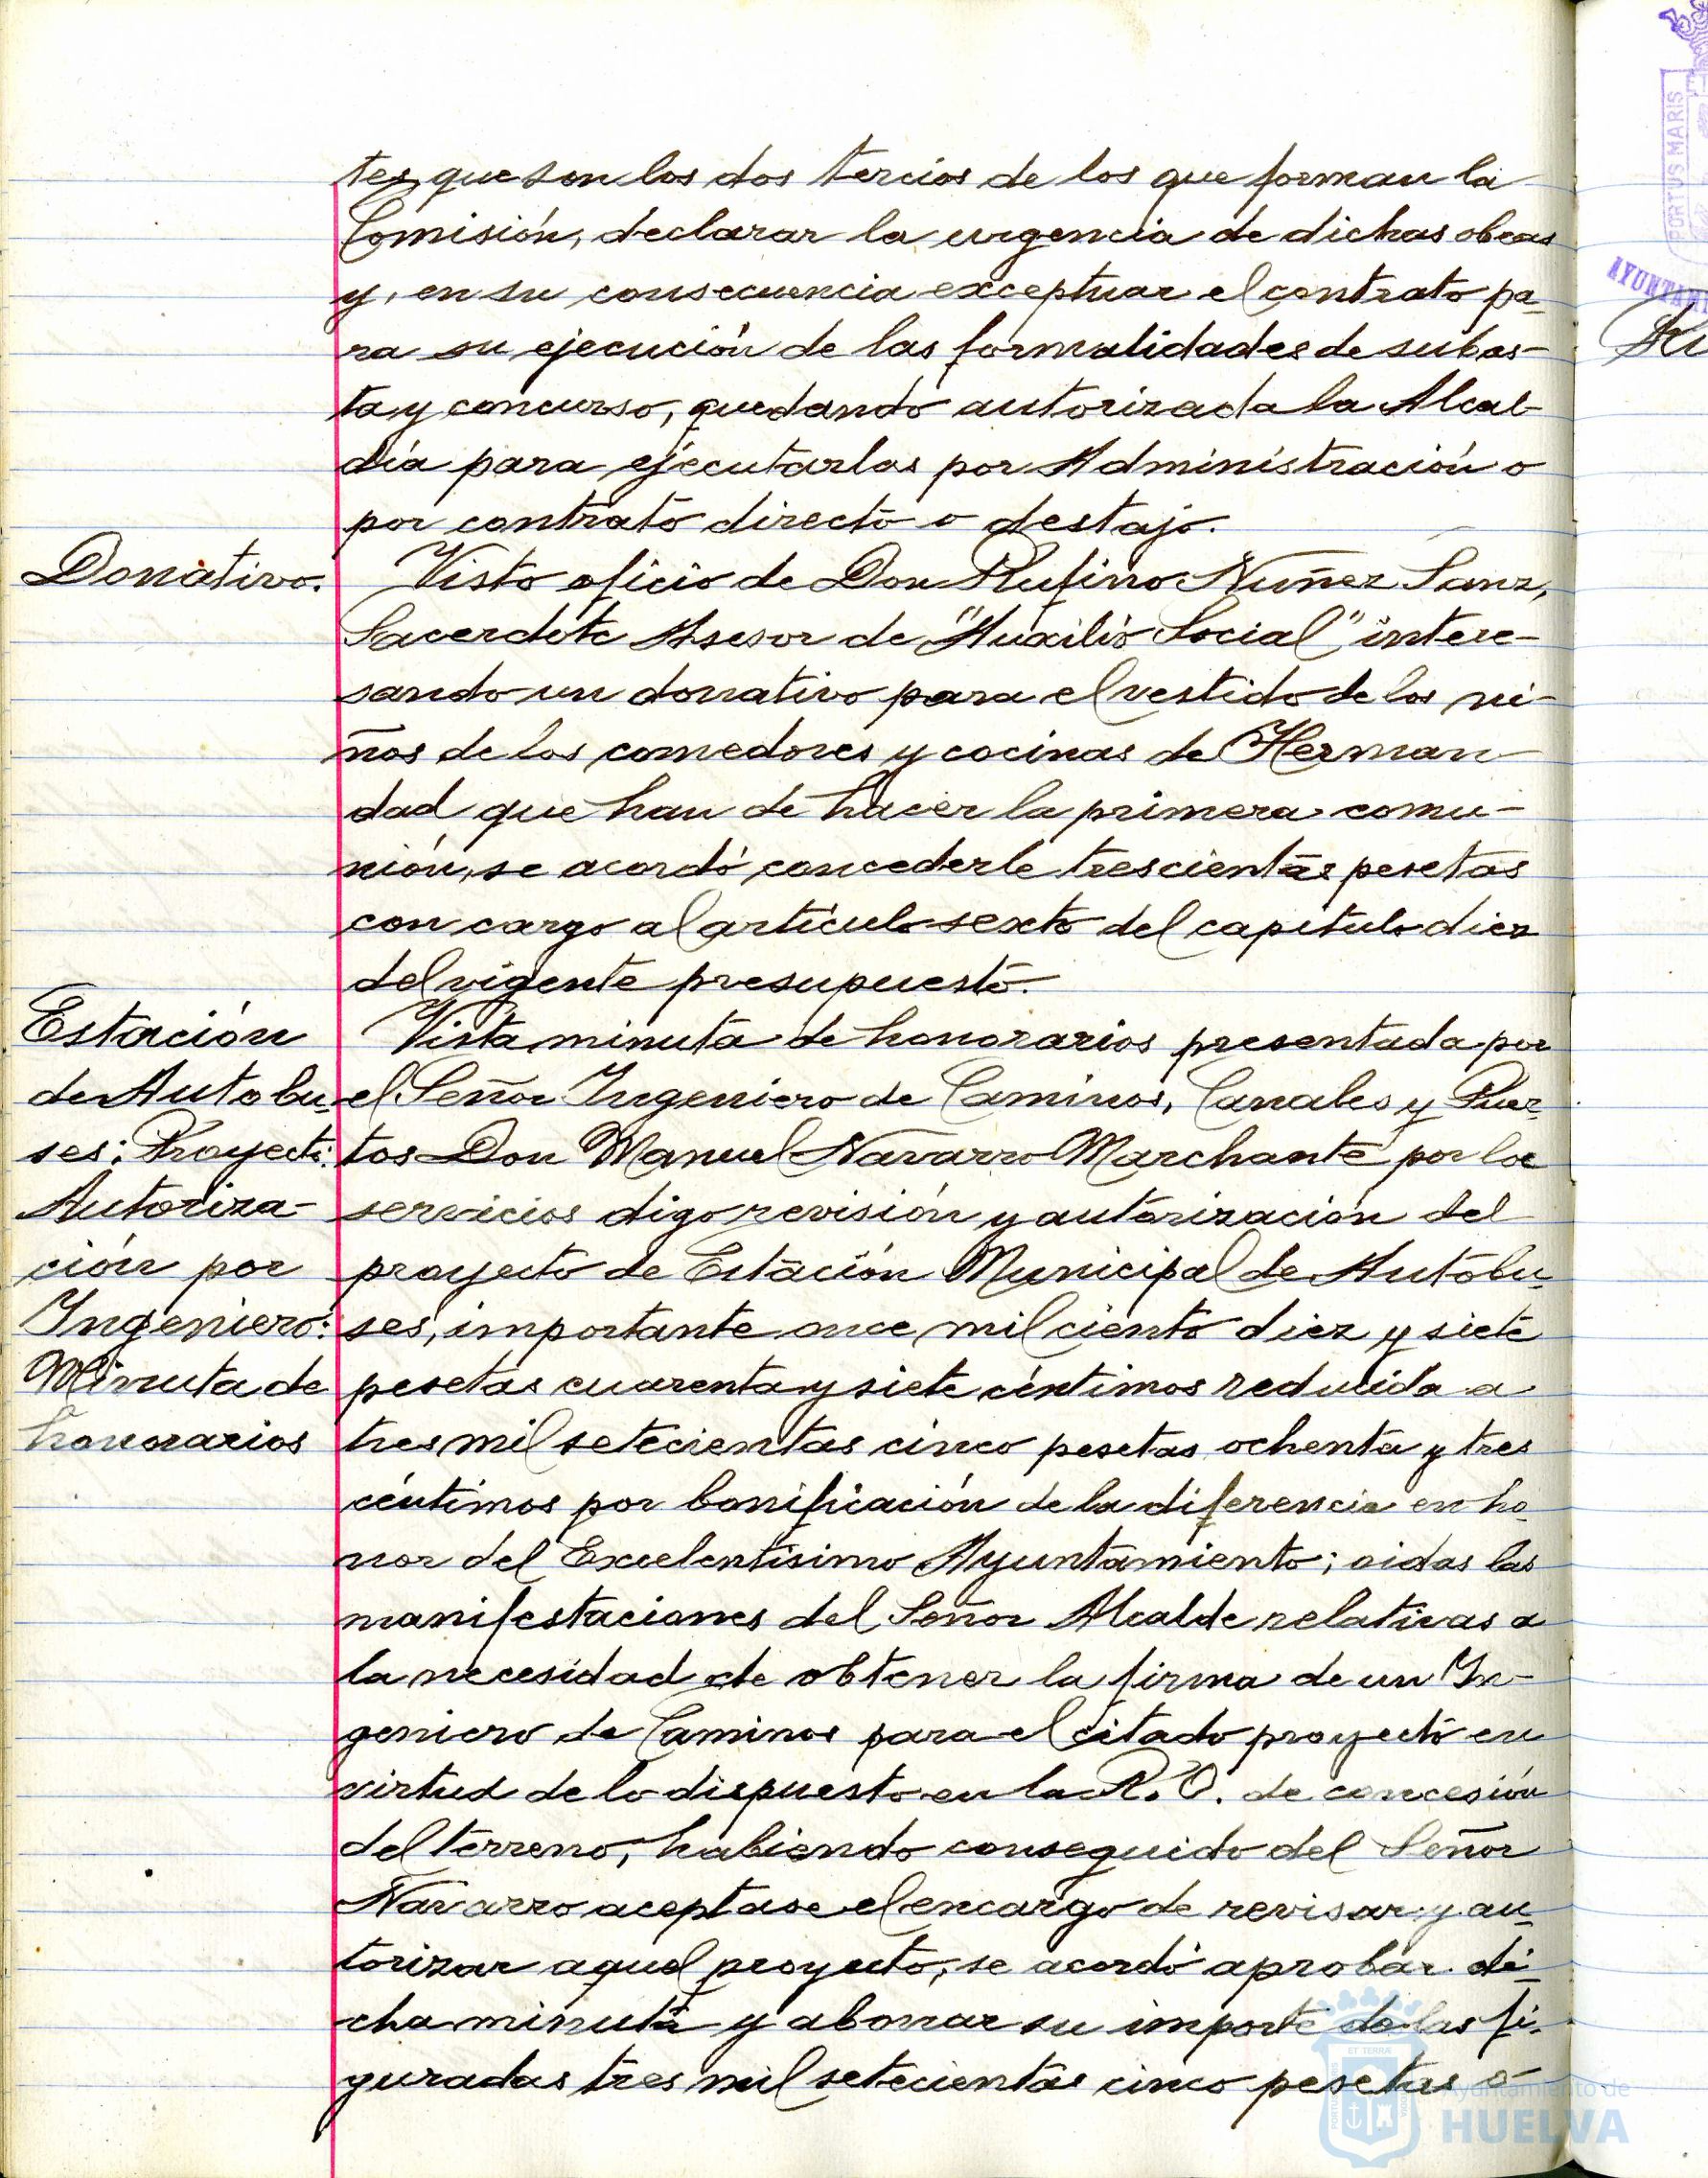 tes que son los dos tercios de los que forman la
Comisión, declarar la urgencia de dichas obras
y, en su consecuencia exceptuar el contrato pa-
ra su ejecución de las formalidades de subas-
ta y concurso, quedando autorizada la Alcal-
día para ejecutarlas por Administración o
por contrato directo o destajo.
Donativo.
Visto oficio de Don Rufino Nuñez Sanz,
Sacerdote Asesor de "Auxilio Social" intere-
sando un donativo para el vestido de los ni-
ños de los comedores y cocinas de Herman-
dad que han de hacer la primera comu-
nión, se acordó concederle trescientas pesetas
con cargo al artículo sexto del capítulo diez
del vigente presupuesto.
Estación
de Autobu-
ses: Proyecto.
Autoriza-
ción por
Ingeniero:
Minuta de
honorarios
Vista minuta de honorarios presentada por
el Señor Ingeniero de Caminos, Canales y Puer-
tos Don Manuel Navarro Marchante por los
servicios digo revisión y autorización del
proyecto de Estación Municipal de Autobu-
ses, importante once mil ciento diez y siete
pesetas cuarenta y siete céntimos reducida a
tres mil setecientas cinco pesetas ochenta y tres
céntimos por bonificación de la diferencia en ho-
nor del Excelentísimo Ayuntamiento; oidas las
manifestaciones del Señor Alcalde relativas a
la necesidad de obtener la firma de un In-
geniero de Caminos para el citado proyecto en
virtud de lo dispuesto en la R. O. de concesión
del terreno, habiendo conseguido del Señor
Navarro aceptase el encargo de revisar y au-
torizar aquel proyecto, se acordó aprobar di-
cha minuta y abonar su importe de las fi-
guradas tres mil setecientas cinco pesetas o-
PORTUS MARIS
Ayuntamiento de
HUELVA